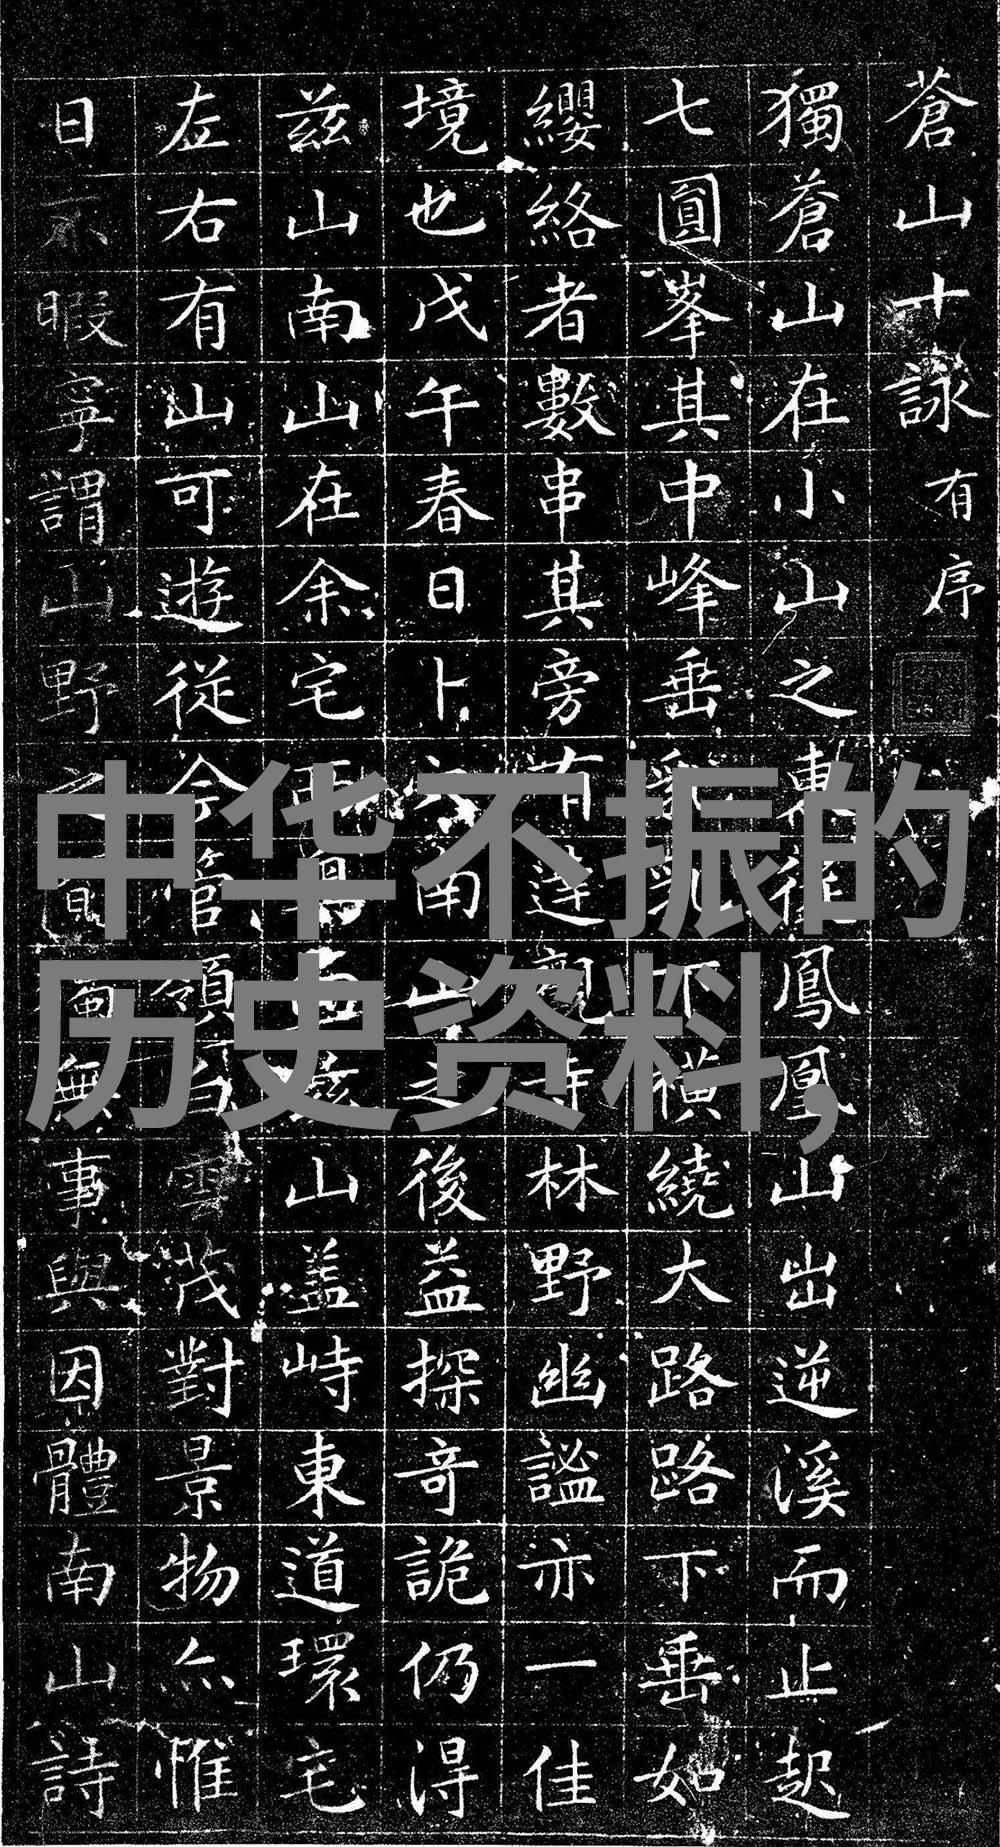 蒼山十詠有序
獨蒼山在小山之東從鳳凰山出逆溪而止起
七圓峯其中峰垂乳下橫繞大路路下垂如
纓絡者數串其旁有達觀寺林野幽謐亦一佳
境也戊午春日卜六南山之後益探奇詭仍得
茲山南山在余宅西茲山蓋峙東道環宅
左右有山可遊從會管領白雲茂對景物亦惟
日不暇寧謂山野之間獨無事與因體南山詩
中华不振的
历史资料,